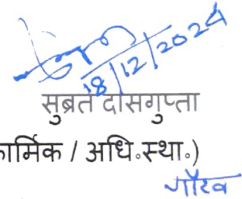 18/12/2024
सुब्रत दासगुप्ता
ार्मिक / अधि.स्था.)
गौरव